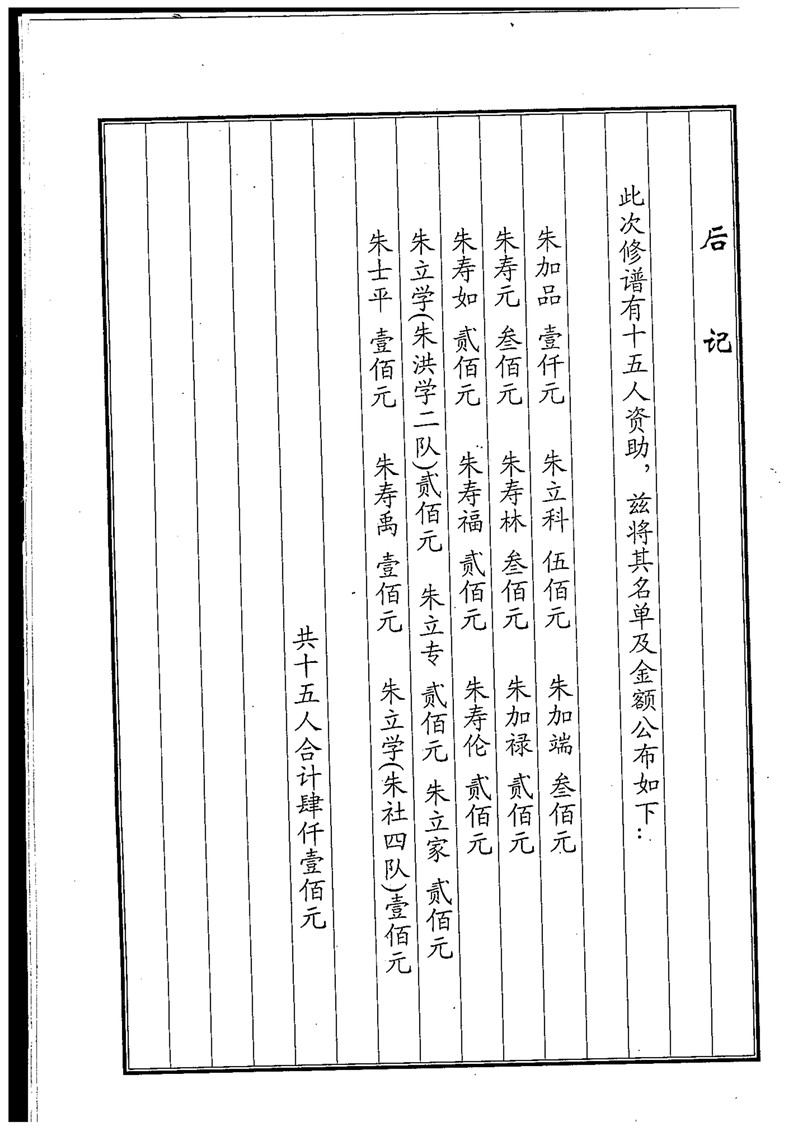 后记
此次修谱有十五人资助，兹将其名单及金额公布如下：
朱加品 壹仟元 朱立科 伍佰元 朱加端 叁佰元
朱寿元 叁佰元 朱寿林 叁佰元 朱加禄 贰佰元
朱寿如 贰佰元 朱寿福 贰佰元 朱寿伦 贰佰元
朱立学(朱洪学二队)贰佰元 朱立专 贰佰元 朱立家 贰佰元
朱士平 壹佰元 朱寿禹 壹佰元 朱立学(朱社四队)壹佰元
共十五人合计肆仟壹佰元